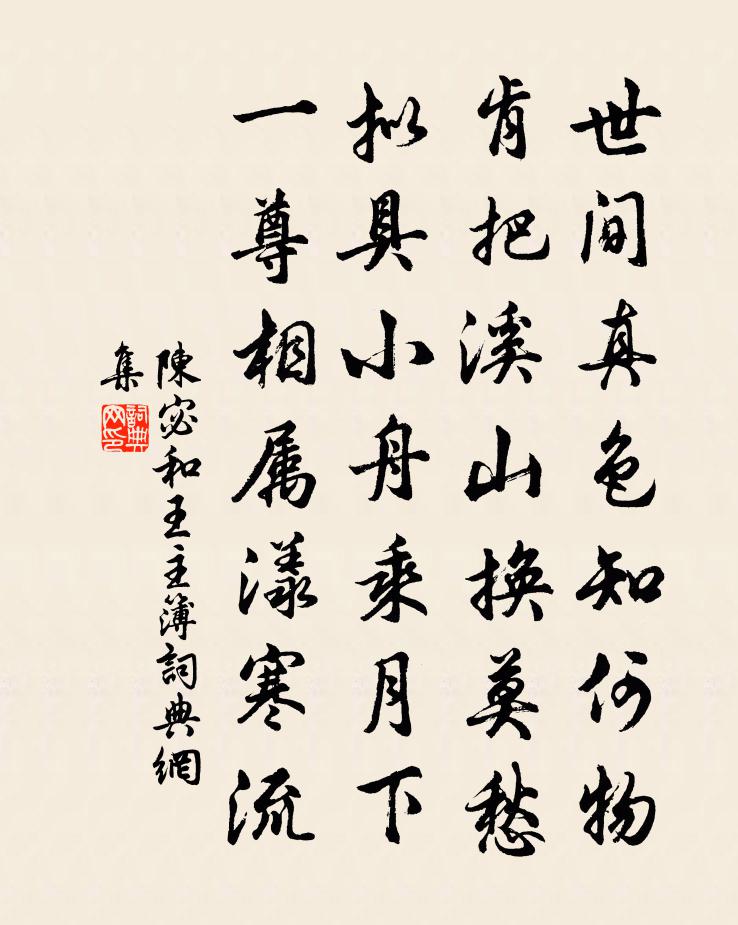 世间真色知何物
肯把溪山换莫愁
拟具小舟乘月下
一尊相属漾寒流
陳宓和王主簿詞典網
集
詞典網印